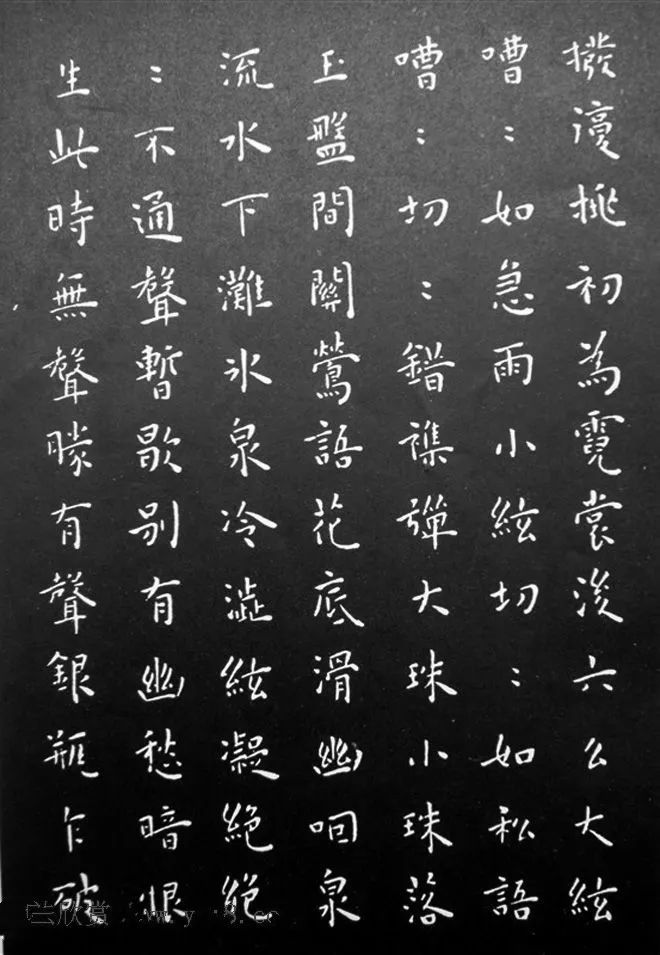 撥復挑初為霓裳後六么大絃
嘈:如急雨小絃切:如私語
嘈:切:錯雜彈大珠小珠落
玉盤間關鶯語花底滑幽咽泉
流水下灘冰泉冷澀絃凝絕絕
:不通聲暫歇別有幽愁暗恨
生此時無聲勝有聲銀瓶乍破
兰欣赏